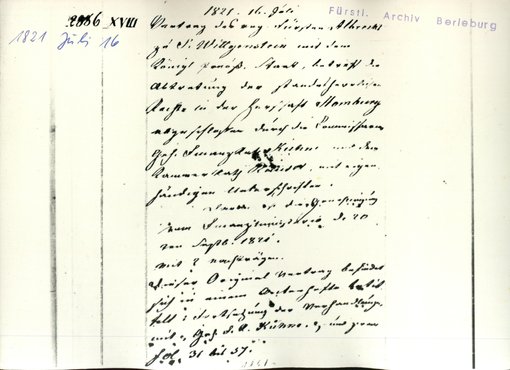 2986 XVIII
1821 Juli 16
Fürstl. Archiv Berleburg
1821. 16. Juli
Vertrag des Fürsten Albrecht
zu S. Wittgenstein mit dem
Königl. preuß. Staat, betreff die
Abtretung der standesherrlichen
Rechte in der Herrschaft Homburg
abgeschlossen durch die Commissarien
Geh. Finanzrath Kühne und den
Kammerrath mit eigen-
händigen Unterschriften.
die Genehmigung
vom Finanzministerio d. 20
von Septb. 1821.
mit 2 Nachträgen.
Dieser Original Vertrag befindet
sich in einem Actenhefte betit-
telt: Fortsetzung der Verhandlungen
mit Geh. F. R. Kühne und zwar
fol. 31 bis 57.